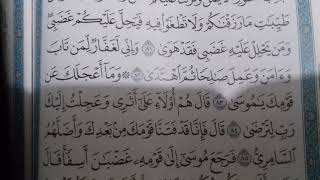 طَيِّبَٰتِ مَا رَزَقْنَٰكُمْ وَلَا تَطْغَوْا۟ فِيهِ فَيَحِلَّ عَلَيْكُمْ غَضَبِى
وَمَن يَحْلِلْ عَلَيْهِ غَضَبِى فَقَدْ هَوَىٰ ٨١ وَإِنِّى لَغَفَّارٌ لِّمَن تَابَ
وَءَامَنَ وَعَمِلَ صَٰلِحًا ثُمَّ ٱهْتَدَىٰ ٨٢ وَمَآ أَعْجَلَكَ عَن
قَوْمِكَ يَٰمُوسَىٰ ٨٣ قَالَ هُمْ أُو۟لَآءِ عَلَىٰٓ أَثَرِى وَعَجِلْتُ إِلَيْكَ
رَبِّ لِتَرْضَىٰ ٨٤ قَالَ فَإِنَّا قَدْ فَتَنَّا قَوْمَكَ مِنۢ بَعْدِكَ وَأَضَلَّهُمُ
ٱلسَّامِرِىُّ ٨٥ فَرَجَعَ مُوسَىٰٓ إِلَىٰ قَوْمِهِۦ غَضْبَٰنَ أَسِفًا قَالَ